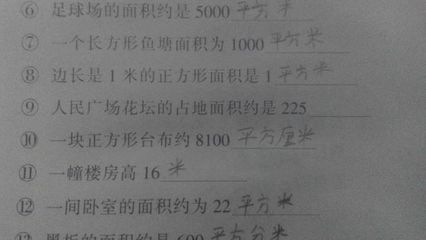 ⑥ 足球场的面积约是 5000 平方米
⑦ 一个长方形鱼塘面积为 1000 平方米
⑧ 边长是 1 米的正方形面积是 1 平方米
⑨ 人民广场花坛的占地面积约是 225
⑩ 一块正方形台布约 8100 平方厘米
⑪ 一幢楼房高 16 米
⑫ 一间卧室的面积约为 22 平方米
⑬ 黑板的面积约是 600 平方分米